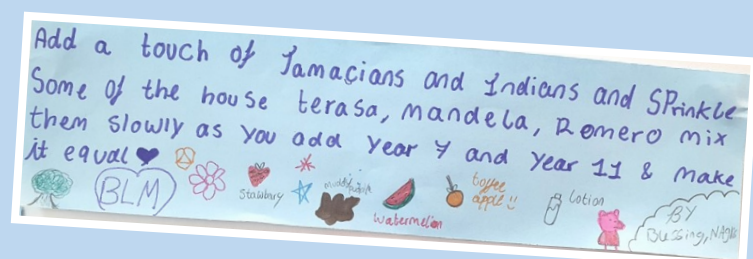 Add a touch of Jamacians and Indians and SPrinkle
Some of the house terasa, mandela, Romero mix
them slowly as you add year 7 and year 11 & make
it equal
BLM
Stawbury
watermelon
toffee
apple !!
Lotion
BY
Blessing,